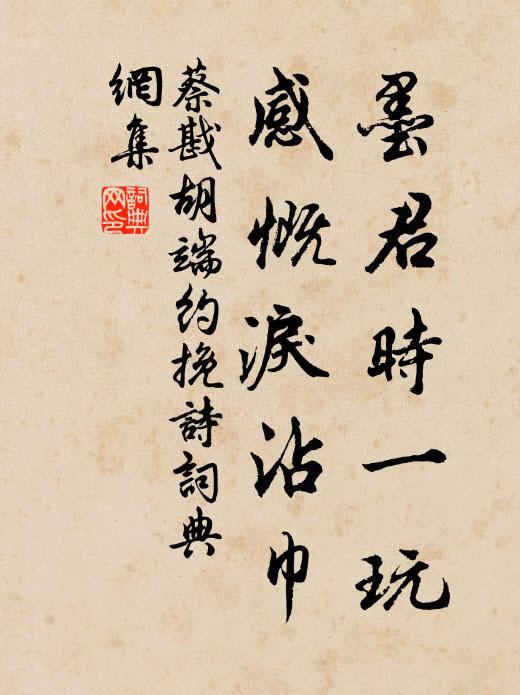 墨君時一玩
感慨淚沾巾
蔡戡胡端約挽詩詞典
網集
詞典
网印